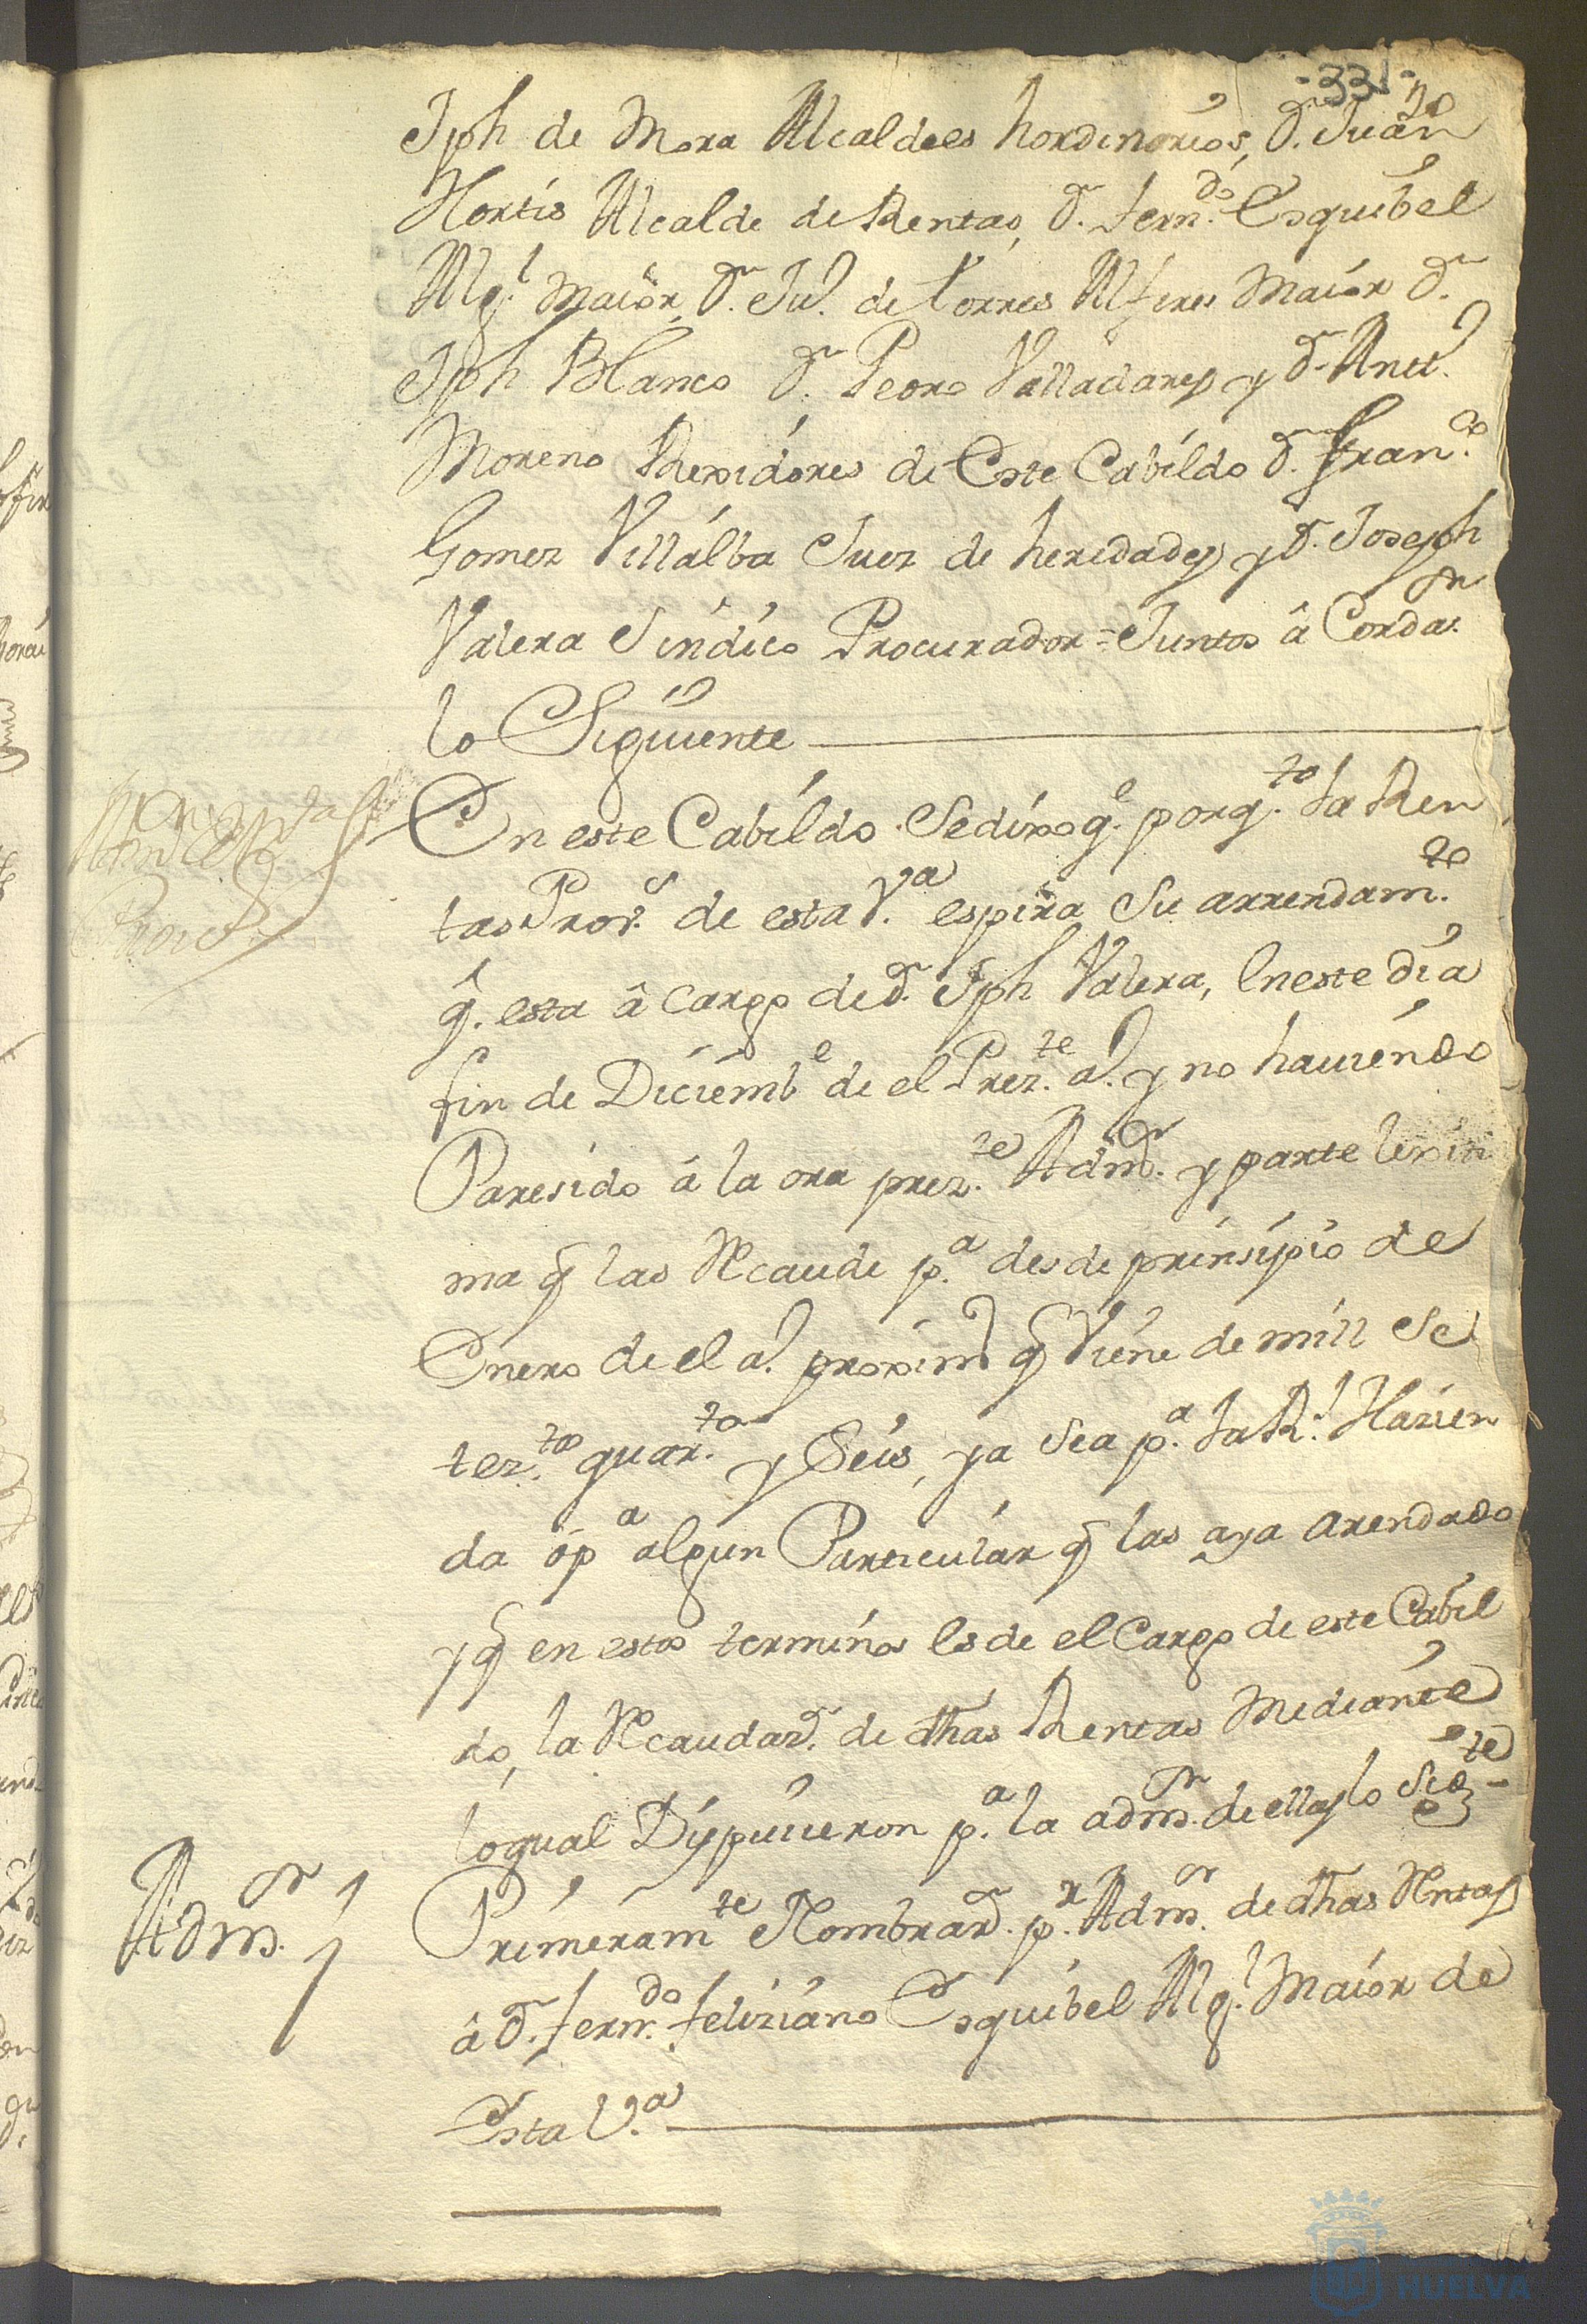 -33-
Jph de Mora Alcaldes hordinarios, Dn. Juan
Hortis Alcalde de Rentas, Dn. Ferndo. Esquibel
Algl. Maior, Dn. Jun. de torres Alferes Maior Dn.
Jph Blanco Dn. Pedro Valladares y Dn. Antt.
Moreno Rexidores de Este Cabildo Dn. Franco.
Gomez Villalba Juez de heredades y Dn. Joseph
Valera Sindico Procurador = Juntos â Cordaron
lo Siguiente
En este Cabildo Sedixo qe. porqto. la Ren
tas Provs. de esta Va. espira Su arrendamto.
q. esta â Cargo de Dn. Jph Valera, Eneste dia
fin de Diciembe de el Prezte. a. y no hauiendo
Paresido â la ora prezte. Admor. y parte lexiti
ma q las Recaude pa. desde prinsipio de
Enero de el a. proximo q Viene de mill Se
tezto. quarta. y Seis, ya Sea pa. la Rl. Hazien
da ó pa algun Particular q las aya arendado
y q en estos terminos Es de el Cargo de este Cabil
do, la Recaudazn. de dhas Rentas Mediante
loqual Dispuuieron pa. la admon. de ellas lo Sigte
Admor.
Primeramte Nombraron. pr. Admor. de dhas Rentas
â Dn. ferndo. feliziano Esquibel Algl. Maior de
Esta Va.
HUELVA